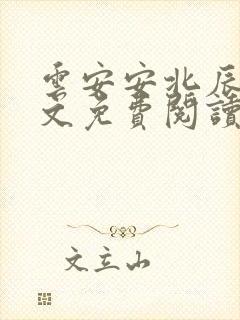 雲安安北辰
文免費閱讀
文立山